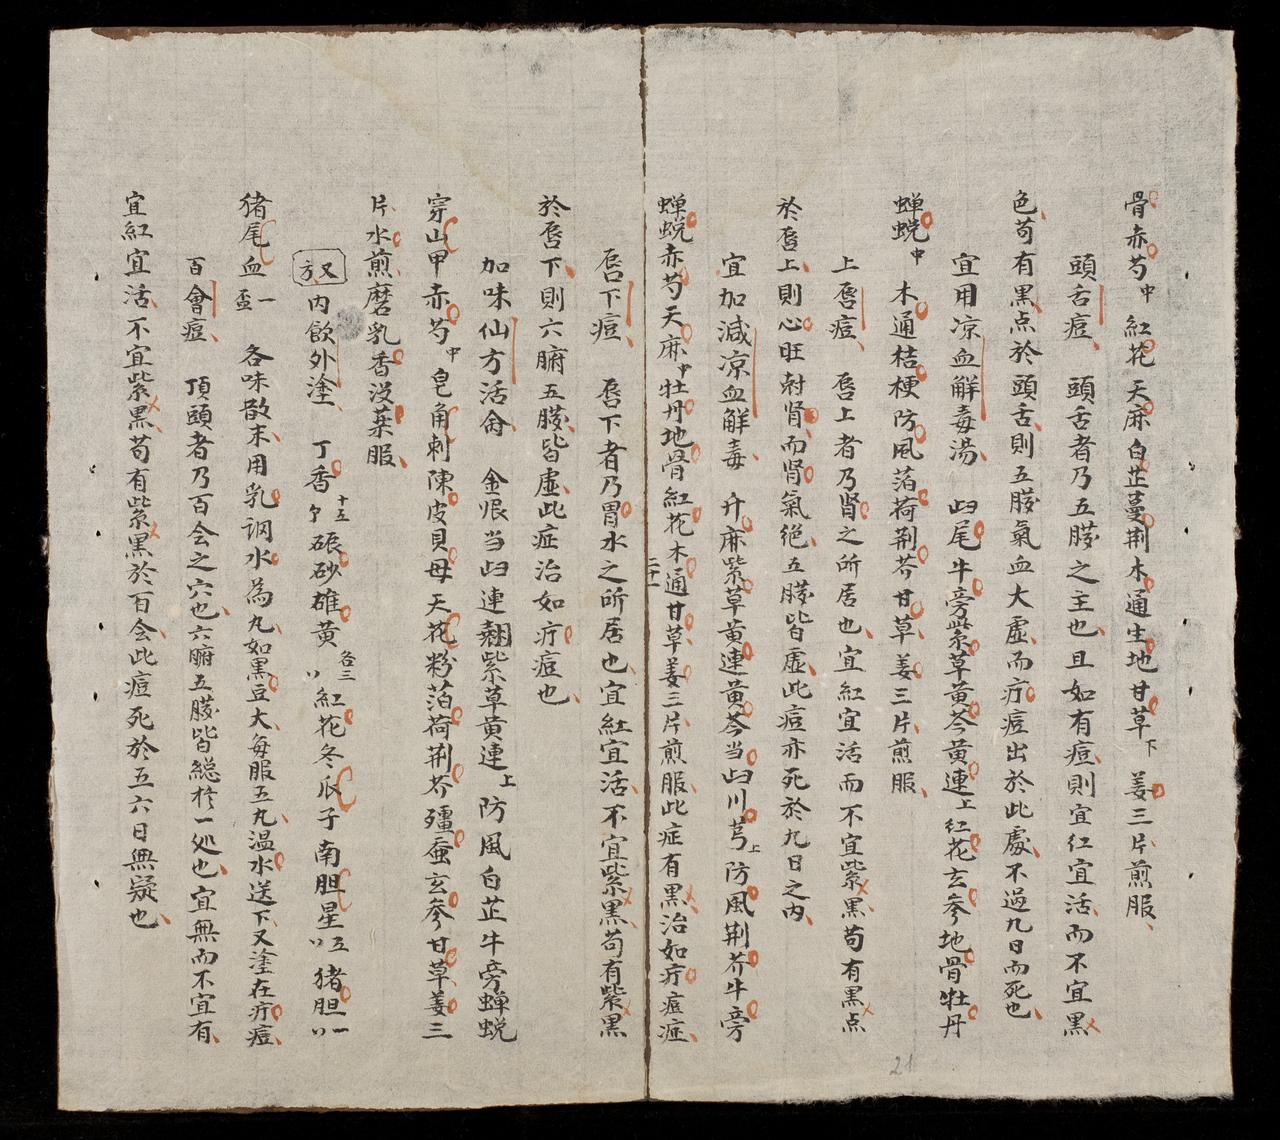 骨赤芍中 紅花天麻白芷蔓荆木通生地甘草下 姜三片煎服
頭舌痘 頭舌者乃五臟之主也且如有痘則宜红宜活而不宜黑
色苟有黑点於頭舌則五臟氣血大虚而疔痘出於此處不過九日而死也
宜用凉血解毒湯 歸尾牛旁紫草黄芩黄連上红花玄參地骨牡丹
蝉蜕中 木通桔梗防風萡荷荆芥甘草姜三片煎服
上唇痘 唇上者乃腎之所居也宜紅宜活而不宜紫黑苟有黑点
於唇上則心旺尅腎而腎氣絶五臟皆虚此痘亦死於九日之内
宜加減凉血解毒 升麻紫草黄連黄芩当歸川芎上防風荆芥牛旁
蝉蜕赤芍天麻中牡丹地骨紅花木通甘草姜三片煎服此症有黑治如疔痘症
二十一
唇下痘 唇下者乃胃水之所居也宜紅宜活不宜紫黑苟有紫黑
於唇下則六腑五臟皆虚此症治如疔痘也
加味仙方活命 金恨当歸連翹紫草黄連上防風白芷牛旁蝉蜕
穿山甲赤芍中皂角刺陳皮貝母天花粉萡荷荆芥殭蚕玄參甘草姜三
片水煎磨乳香没藥服
又方 内飲外塗 丁香十五 硍砂雄黄各三 紅花冬瓜子南胆星五猪胆一
猪尾血一盃 各味散末用乳调水為丸如黑豆大每服五丸温水送下又塗在疔痘
百會痘 頂頭者乃百会之穴也六腑五臟皆総於一処也宜無而不宜有
宜紅宜活不宜紫黑苟有紫黑於百会此痘死於五六日無疑也
21